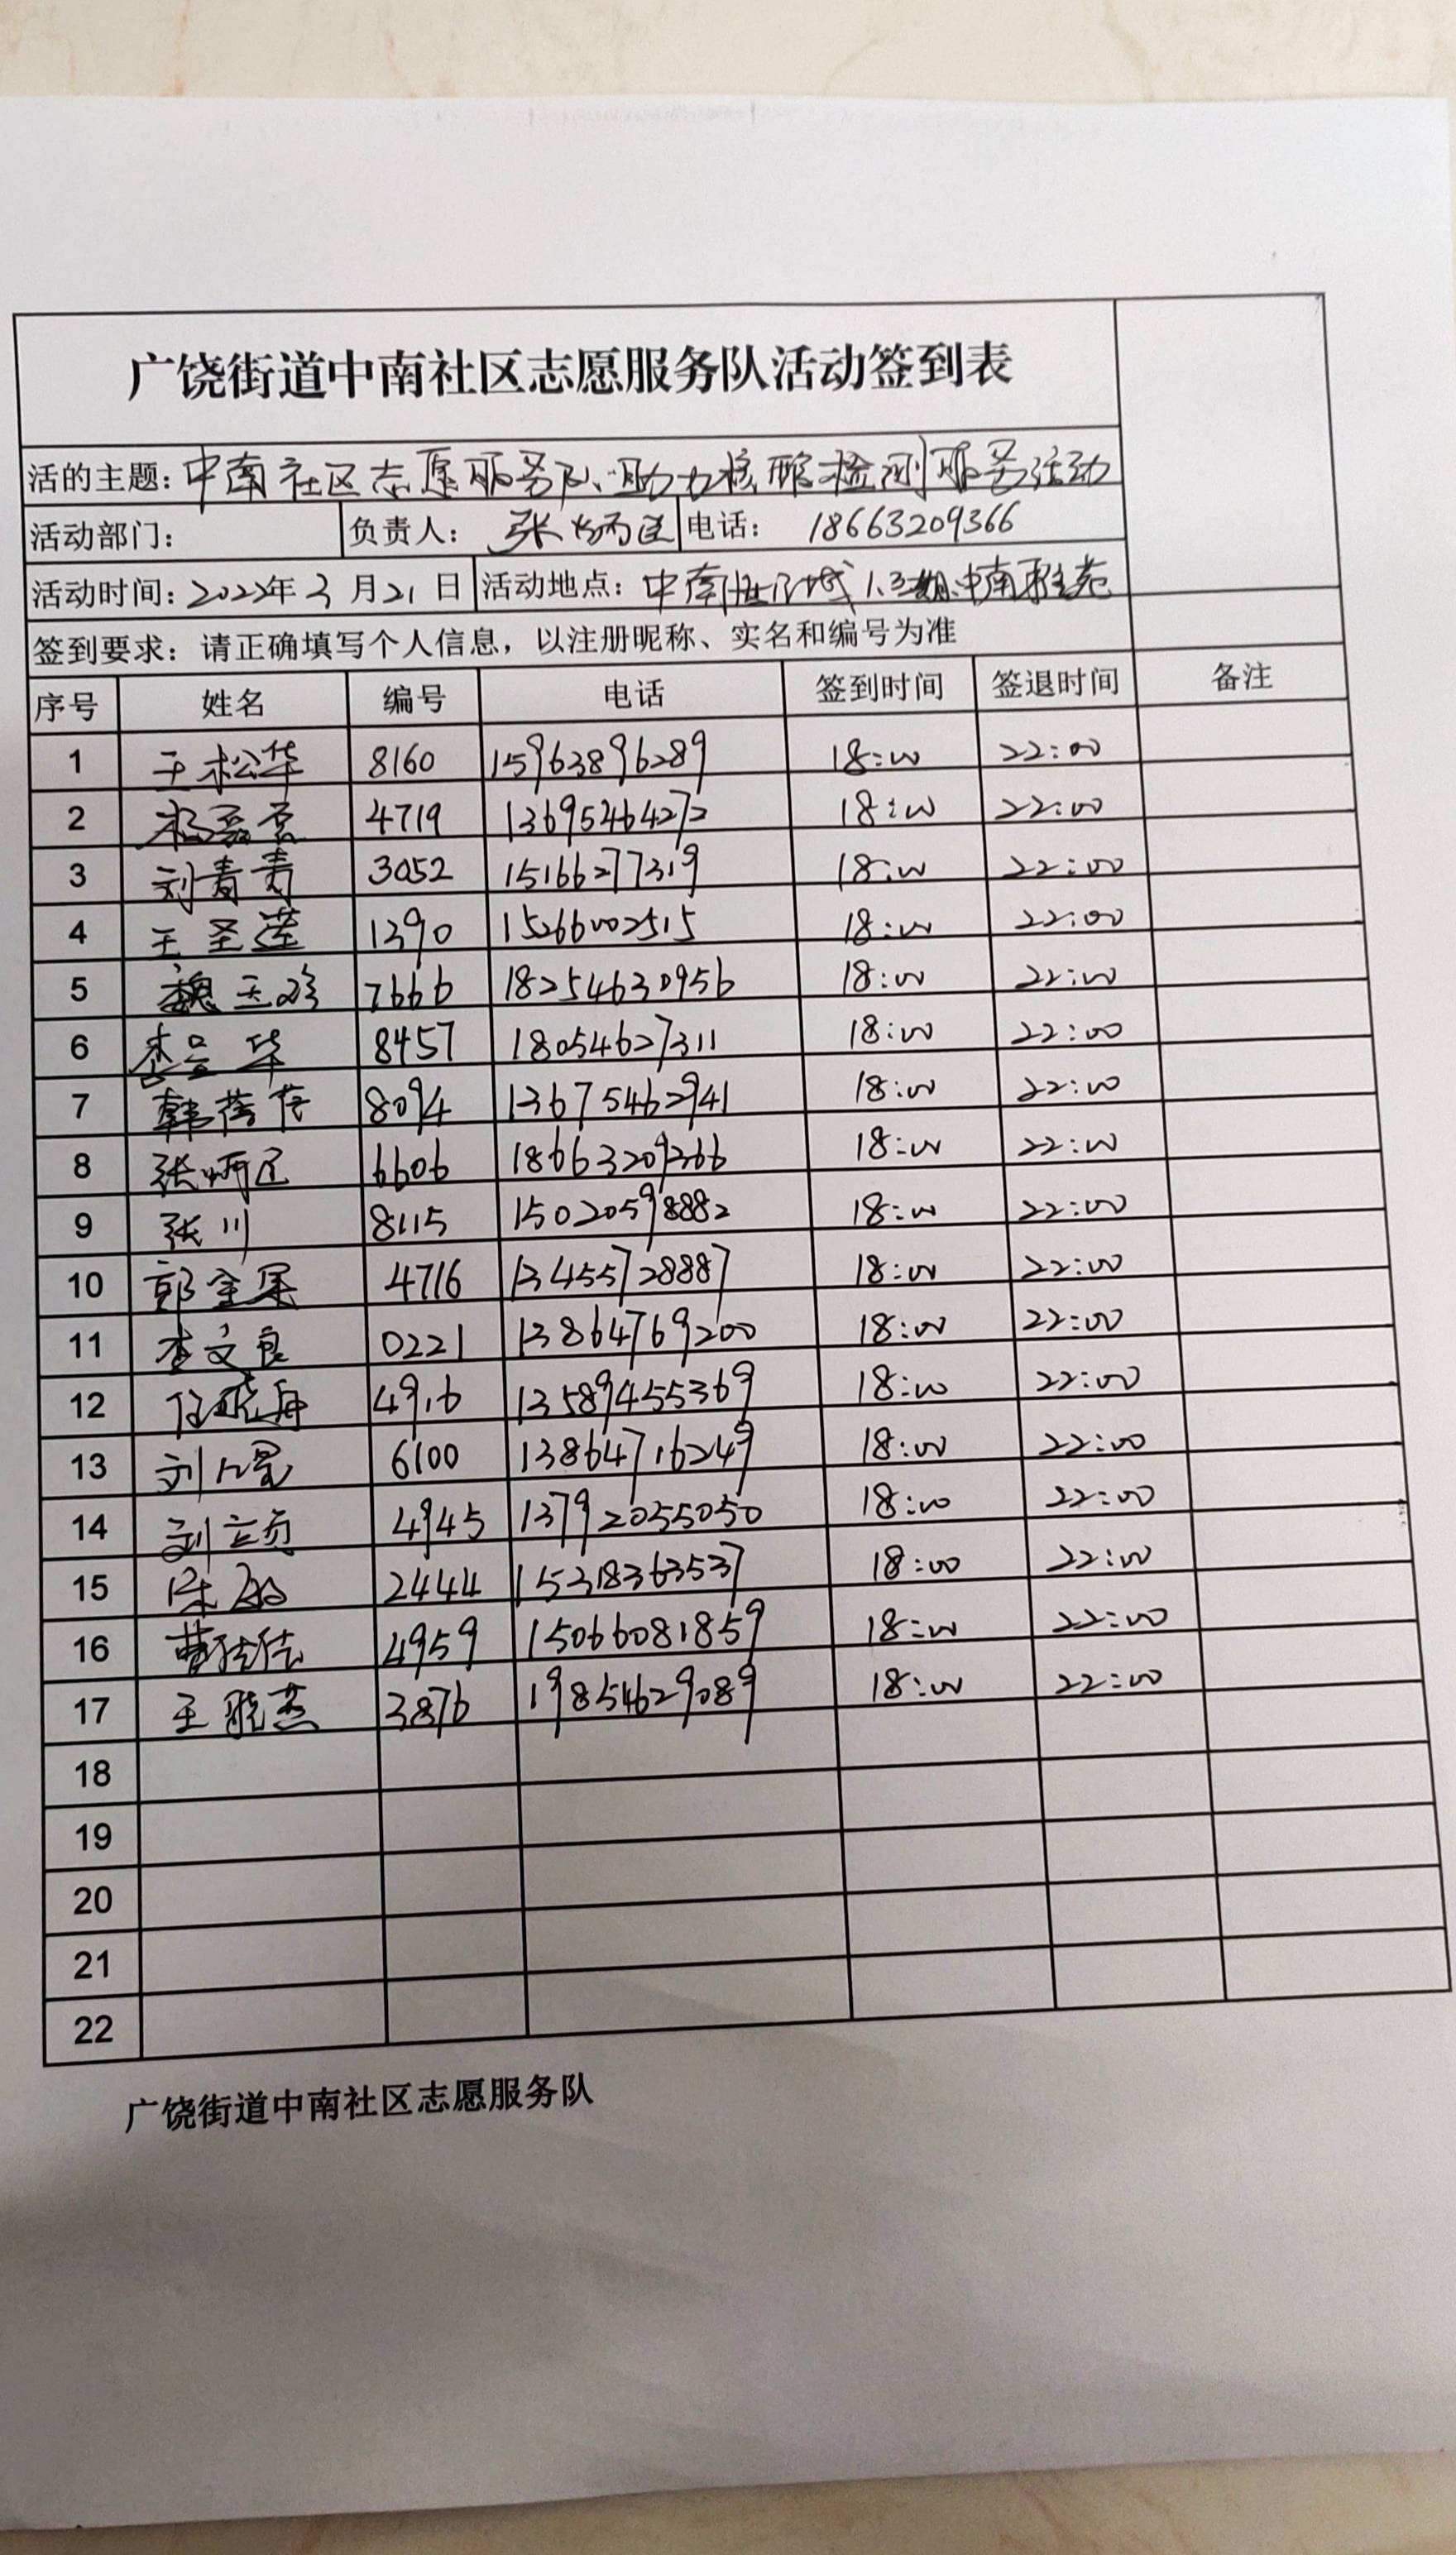 广饶街道中南社区志愿服务队活动签到表
活的主题：中南社区志愿服务队、助力核酸检测服务活动
活动部门： 负责人：张炳臣 电话：18663209366
活动时间：2022年3月21日 活动地点：中南世纪城1.3期.中南雅苑
签到要求：请正确填写个人信息，以注册昵称、实名和编号为准
序号 姓名 编号 电话 签到时间 签退时间 备注
1 王松华 8160 15963896289 18:00 22:00
2 4719 13695464272 18:00 22:00
3 刘青青 3052 15166277319 18:00 22:00
4 王圣莲 1390 15266002515 18:00 22:00
5 魏玉珍 7666 18254630956 18:00 22:00
6 华 8457 18054627311 18:00 22:00
7 韩蓓蓓 8094 13675462941 18:00 22:00
8 张炳臣 6606 18663209366 18:00 22:00
9 张川 8115 15020598882 18:00 22:00
10 郭金果 4716 13455728887 18:00 22:00
11 李文良 0221 13864769200 18:00 22:00
12 任晓舟 4916 13589455369 18:00 22:00
13 刘 6100 13864716249 18:00 22:00
14 刘立贞 4945 13792055050 18:00 22:00
15 陈 2444 15318363537 18:00 22:00
16 曹佳佳 4959 15066081859 18:00 22:00
17 王晓燕 3876 19854629089 18:00 22:00
18
19
20
21
22
广饶街道中南社区志愿服务队